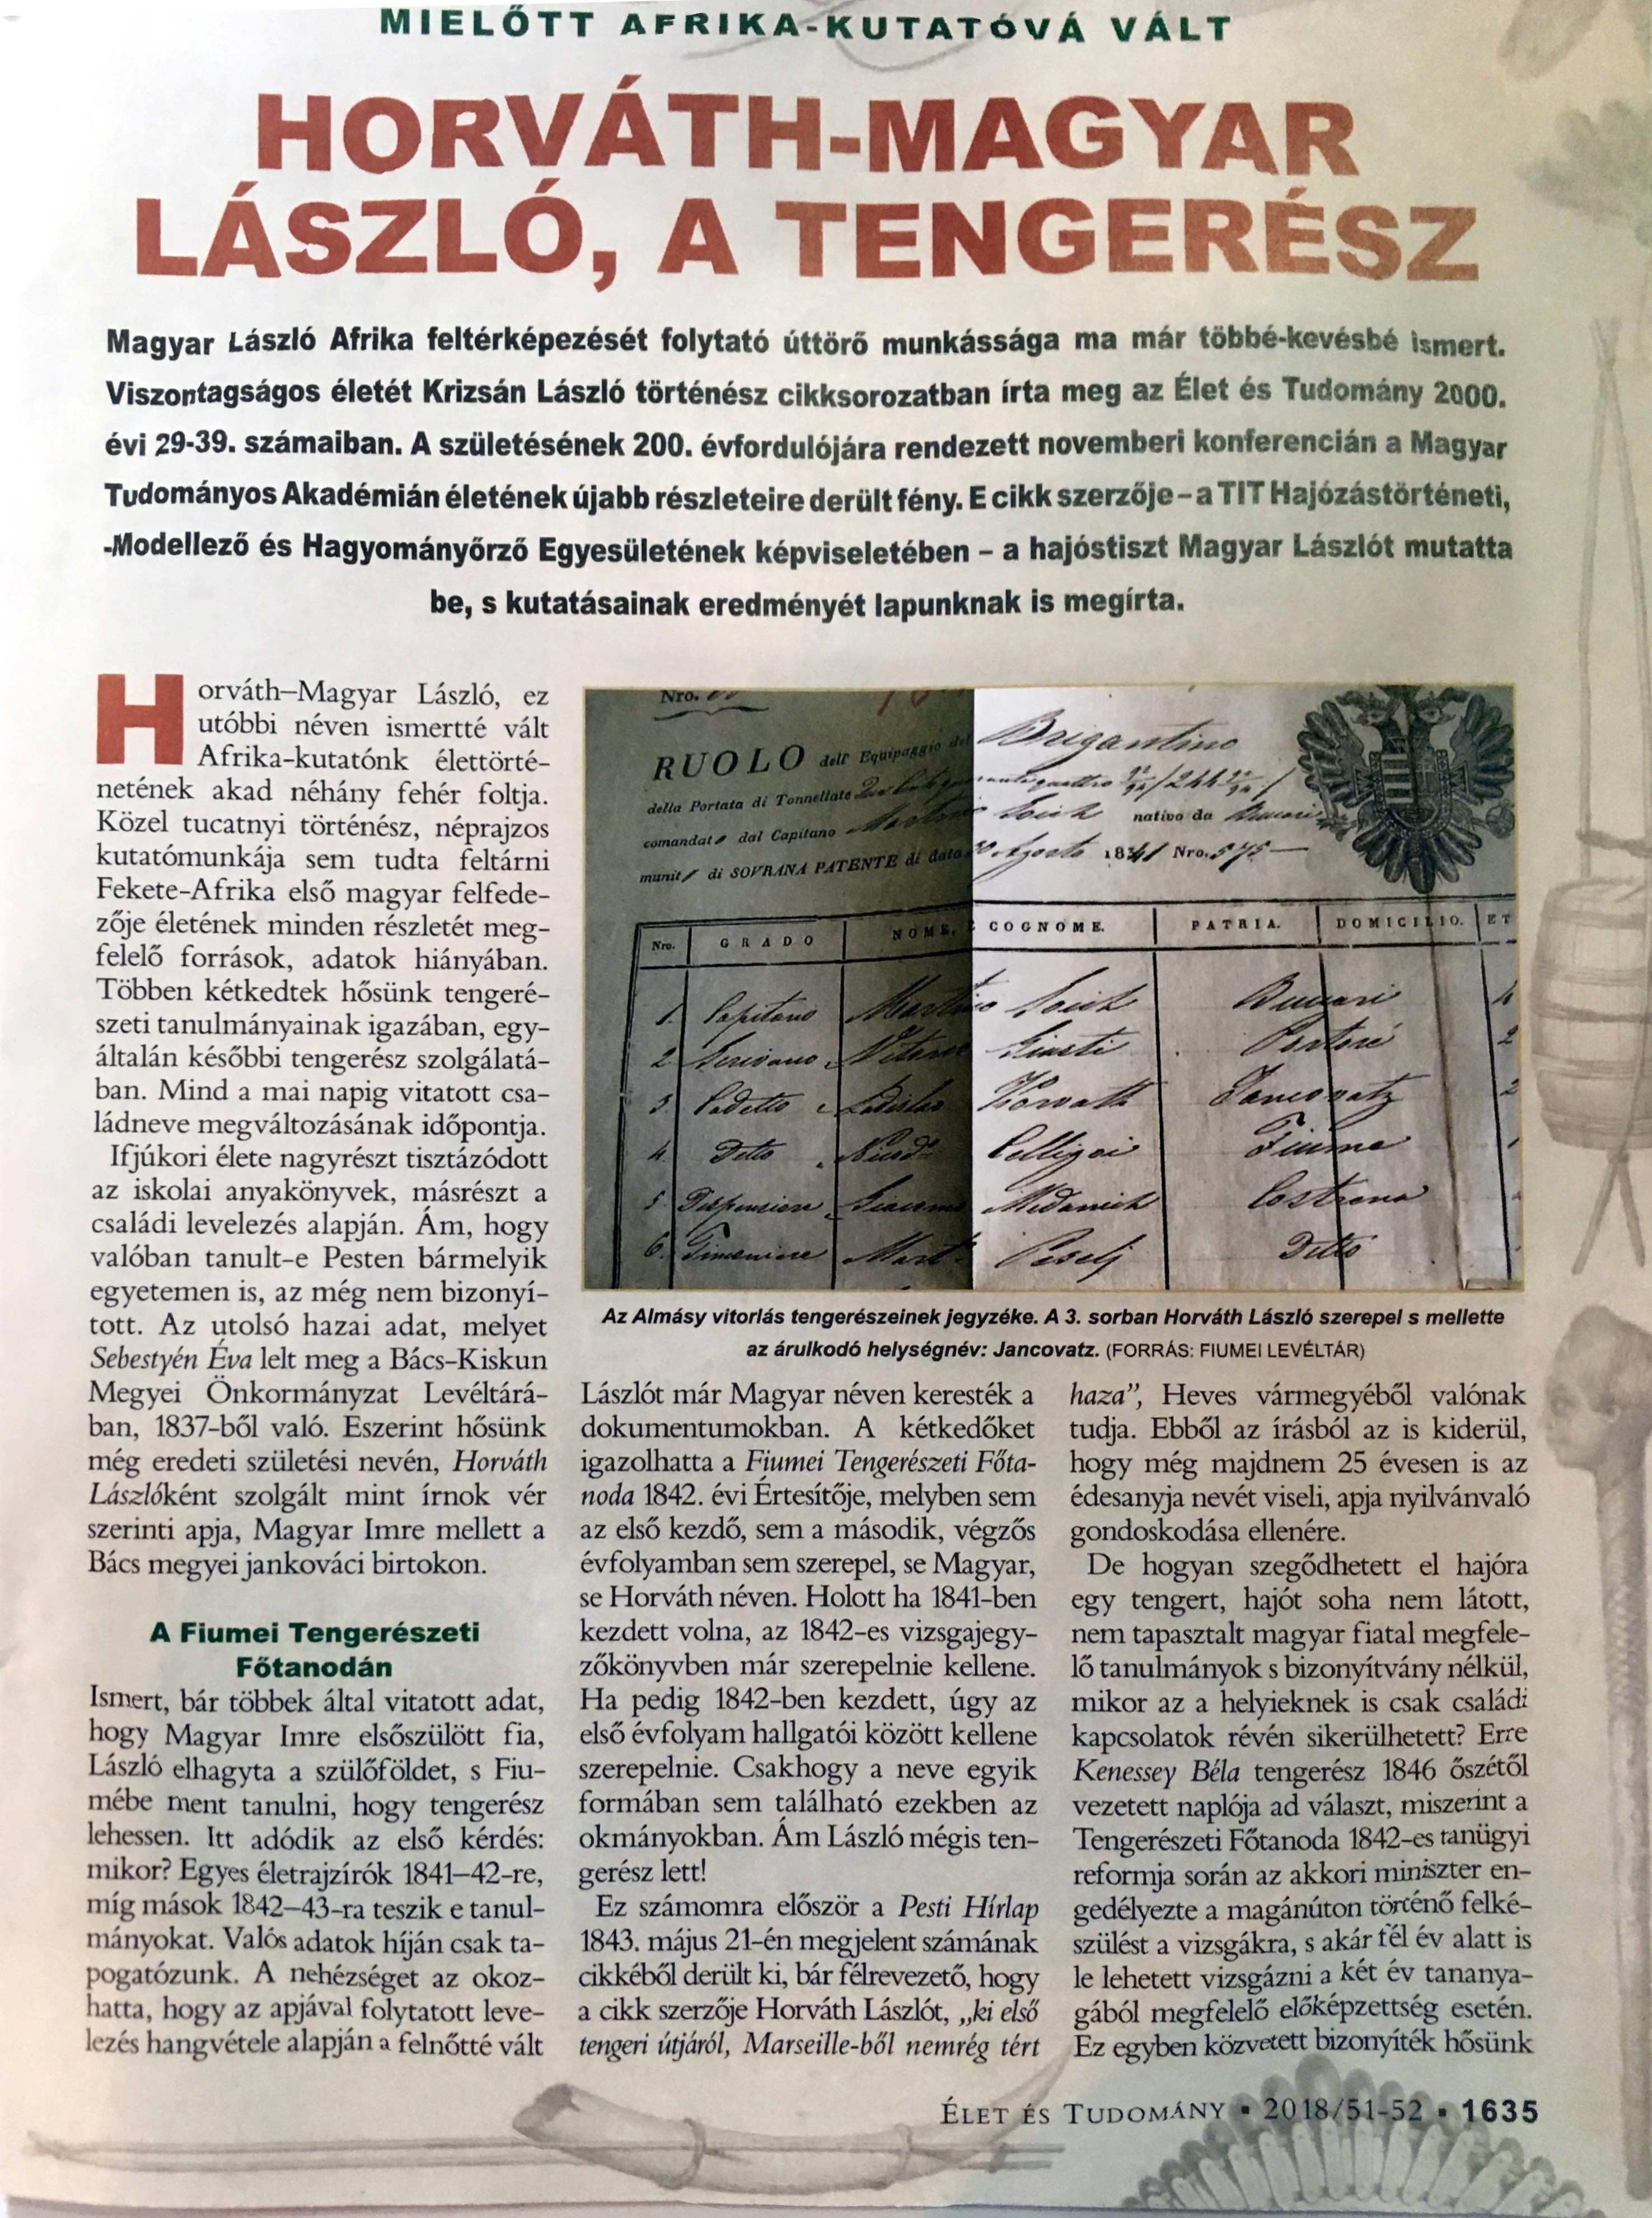 MIELŐTT AFRIKA-KUTATÓVÁ VÁLT
HORVÁTH-MAGYAR
LÁSZLÓ, A TENGERÉSZ
Magyar László Afrika feltérképezését folytató úttörő munkássága ma már többé-kevésbé ismert.
Viszontagságos életét Krizsán László történész cikksorozatban írta meg az Élet és Tudomány 2000.
évi 29-39. számaiban. A születésének 200. évfordulójára rendezett novemberi konferencián a Magyar
Tudományos Akadémián életének újabb részleteire derült fény. E cikk szerzője – a TIT Hajózástörténeti,
-Modellező és Hagyományőrző Egyesületének képviseletében – a hajóstiszt Magyar Lászlót mutatta
be, s kutatásainak eredményét lapunknak is megírta.
Horváth–Magyar László, ez
utóbbi néven ismertté vált
Afrika-kutatónk élettörté-
netének akad néhány fehér foltja.
Közel tucatnyi történész, néprajzos
kutatómunkája sem tudta feltárni
Fekete-Afrika első magyar felfede-
zője életének minden részletét meg-
felelő források, adatok hiányában.
Többen kétkedtek hősünk tengeré-
szeti tanulmányainak igazában, egy-
általán későbbi tengerész szolgálatá-
ban. Mind a mai napig vitatott csa-
ládneve megváltozásának időpontja.
Ifjúkori élete nagyrészt tisztázódott
az iskolai anyakönyvek, másrészt a
családi levelezés alapján. Ám, hogy
valóban tanult-e Pesten bármelyik
egyetemen is, az még nem bizonyí-
tott. Az utolsó hazai adat, melyet
Sebestyén Éva lelt meg a Bács-Kiskun
Megyei Önkormányzat Levéltárá-
ban, 1837-ből való. Eszerint hősünk
még eredeti születési nevén, Horváth
Lászlóként szolgált mint írnok vér
szerinti apja, Magyar Imre mellett a
Bács megyei jankováci birtokon.
A Fiumei Tengerészeti
Főtanodán
Ismert, bár többek által vitatott adat,
hogy Magyar Imre elsőszülött fia,
László elhagyta a szülőföldet, s Fiu-
mébe ment tanulni, hogy tengerész
lehessen. Itt adódik az első kérdés:
mikor? Egyes életrajzírók 1841–42-re,
míg mások 1842–43-ra teszik e tanul-
mányokat. Valós adatok híján csak ta-
pogatózunk. A nehézséget az okoz-
hatta, hogy az apjával folytatott leve-
lezés hangvétele alapján a felnőtté vált
Nro.
RUOLO dell' Equipaggio del Brigantino
della Portata di Tonnellate
comandat dal Capitano Martino nativo da Buccari
munit di SOVRANA PATENTE di data Agosto 1841 Nro. 575
Nro. GRADO NOME, E COGNOME. PATRIA. DOMICILIO. ET
1. Capitano Martino Buccari
2. Scrivano Giusti Portoré
3. Cadetto Ladislao Horvath Jancovatz
4. Detto Celligoi Fiume
5. Dispensiere Giacomo Medanich Costrena
6. Timoniere Mart Detto
Az Almásy vitorlás tengerészeinek jegyzéke. A 3. sorban Horváth László szerepel s mellette
az árulkodó helységnév: Jancovatz. (FORRÁS: FIUMEI LEVÉLTÁR)
Lászlót már Magyar néven keresték a
dokumentumokban. A kétkedőket
igazolhatta a Fiumei Tengerészeti Főta-
noda 1842. évi Értesítője, melyben sem
az első kezdő, sem a második, végzős
évfolyamban sem szerepel, se Magyar,
se Horváth néven. Holott ha 1841-ben
kezdett volna, az 1842-es vizsgajegy-
zőkönyvben már szerepelnie kellene.
Ha pedig 1842-ben kezdett, úgy az
első évfolyam hallgatói között kellene
szerepelnie. Csakhogy a neve egyik
formában sem található ezekben az
okmányokban. Ám László mégis ten-
gerész lett!
Ez számomra először a Pesti Hírlap
1843. május 21-én megjelent számának
cikkéből derült ki, bár félrevezető, hogy
a cikk szerzője Horváth Lászlót, „ki első
tengeri útjáról, Marseille-ből nemrég tért
haza”, Heves vármegyéből valónak
tudja. Ebből az írásból az is kiderül,
hogy még majdnem 25 évesen is az
édesanyja nevét viseli, apja nyilvánvaló
gondoskodása ellenére.
De hogyan szegődhetett el hajóra
egy tengert, hajót soha nem látott,
nem tapasztalt magyar fiatal megfele-
lő tanulmányok s bizonyítvány nélkül,
mikor az a helyieknek is csak családi
kapcsolatok révén sikerülhetett? Erre
Kenessey Béla tengerész 1846 őszétől
vezetett naplója ad választ, miszerint a
Tengerészeti Főtanoda 1842-es tanügyi
reformja során az akkori miniszter en-
gedélyezte a magánúton történő felké-
szülést a vizsgákra, s akár fél év alatt is
le lehetett vizsgázni a két év tananya-
gából megfelelő előképzettség esetén.
Ez egyben közvetett bizonyíték hősünk
ÉLET ÉS TUDOMÁNY ▪ 2018/51-52 ▪ 1635